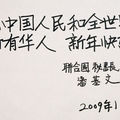 中国人民和全世
有华人 新年快
聯合國 秘書長
潘基文
2009年1